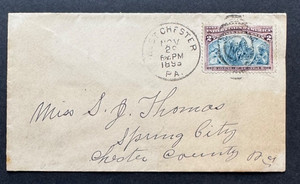 WEST CHESTER
NOV
6 PM
1893
PA.
2
2
Miss S. J. Thomas
Spring City
Chester County Pa